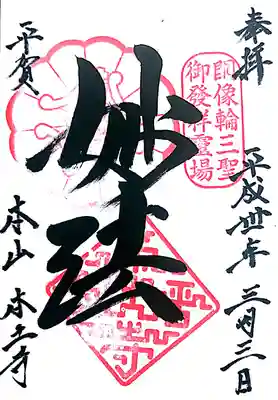 奉拝
朗像輪三聖
御發祥靈場
平成卅年三月三日
妙法
平賀
本山本土寺